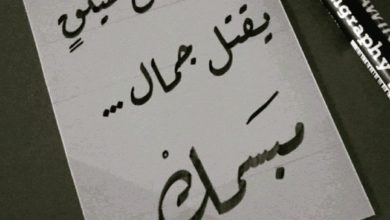 ضيقٍ
يقتل جمال...
مبسمك
igraphy